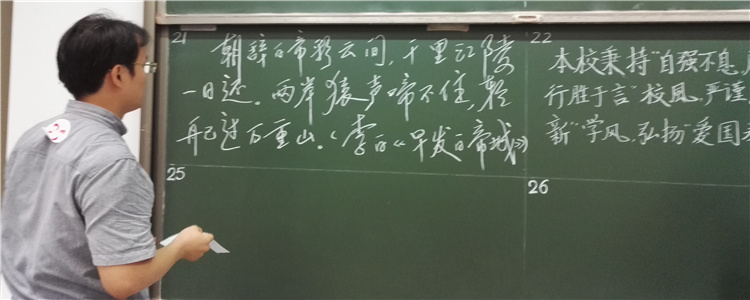 21
朝辞白帝彩云间,千里江陵
一日还。两岸猿声啼不住,轻
舟已过万重山。(李白《早发白帝城》)
22
本校秉持"自强不息,
行胜于言"校風,严谨
新"学风,弘扬"爱国
25
26